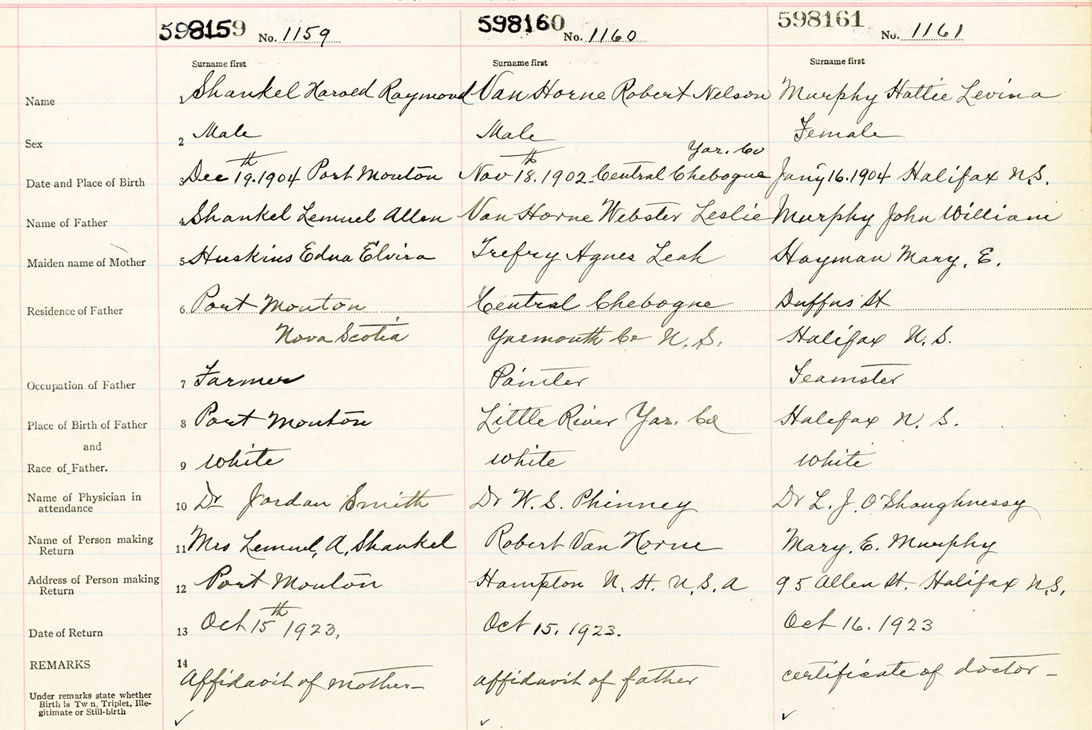 598159 No. 1159 598160 No. 1160 598161 No. 1161
Surname first Surname first Surname first
Name 1 Shankel Harold Raymond Van Horne Robert Nelson Murphy Hattie Levina
Sex 2 Male Male Female
Yar. Co
Date and Place of Birth 3 Dec 19th. 1904 Port Mouton Nov 18th. 1902 - Central Chebogue Jany 16. 1904 Halifax N.S.
Name of Father 4 Shankel Lemuel Allen Van Horne Webster Leslie Murphy John William
Maiden name of Mother 5 Huskins Edna Elvira Trefry Agnes Leah Hayman Mary. E.
Residence of Father 6 Port Mouton Central Chebogue Duffus St
Nova Scotia Yarmouth Co N.S. Halifax N.S.
Occupation of Father 7 Farmer Painter Teamster
Place of Birth of Father 8 Port Mouton Little River Yar. Co Halifax N.S.
and
Race of Father. 9 White White White
Name of Physician in attendance 10 Dr Jordan Smith Dr W. S. Phinney Dr L. J. O'Shaughnessy
Name of Person making Return 11 Mrs Lemuel, A, Shankel Robert Van Horne Mary. E. Murphy
Address of Person making Return 12 Port Mouton Hampton N. H. U.S.A 95 Allen St. Halifax N.S.
Date of Return 13 Oct 15th 1923, Oct 15. 1923. Oct 16. 1923
REMARKS 14 Affidavit of mother- affidavit of father certificate of doctor-
Under remarks state whether
Birth is Twn, Triplet, Ille-
gitimate or Still-birth